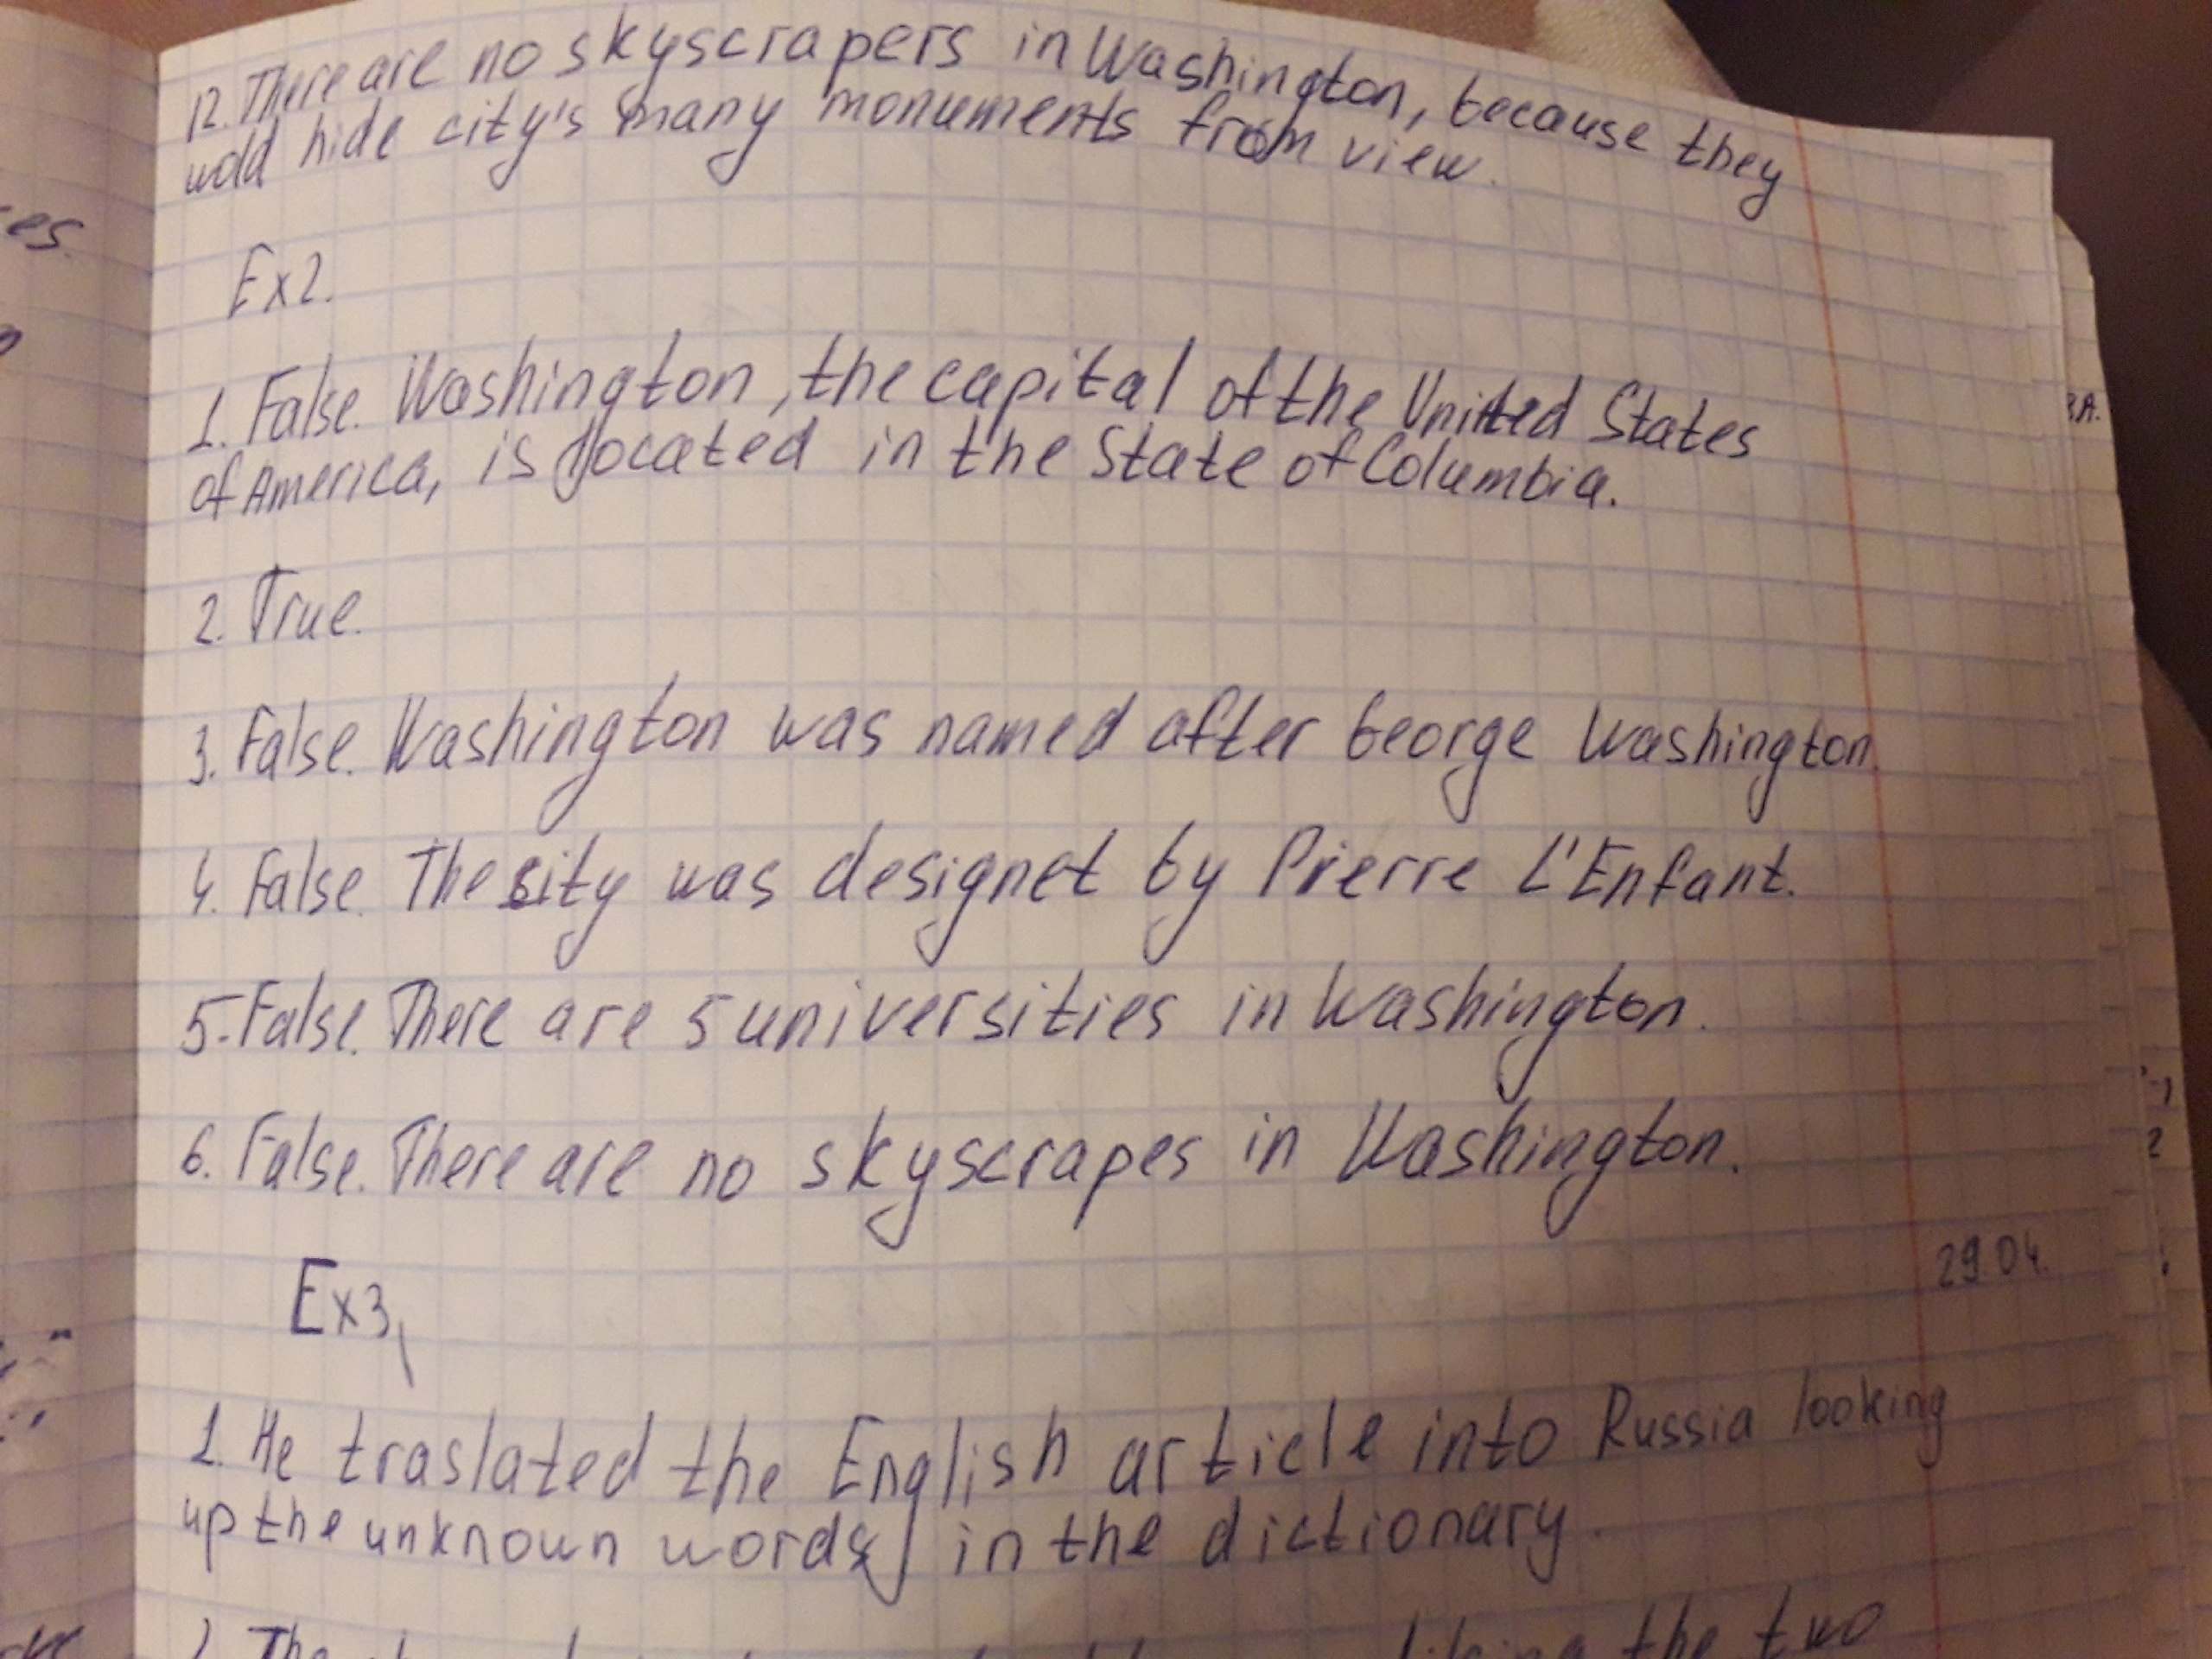 12. There are no skyscrapers in Washington, because they
wold hide city's many monuments from view.
Ex2.
1. False. Washington, the capital of the United States
of America, is located in the State of Columbia.
2. True.
3. False. Washington was named after George Washington.
4. False. The sity was designet by Pierre L'Enfant.
5. False. There are 5 universities in Washington.
6. False. There are no skyscrapes in Washington.
29.04.
Ex3,
1. He traslated the English article into Russia looking
up the unknown words in the dictionary.
2. The the two
es.